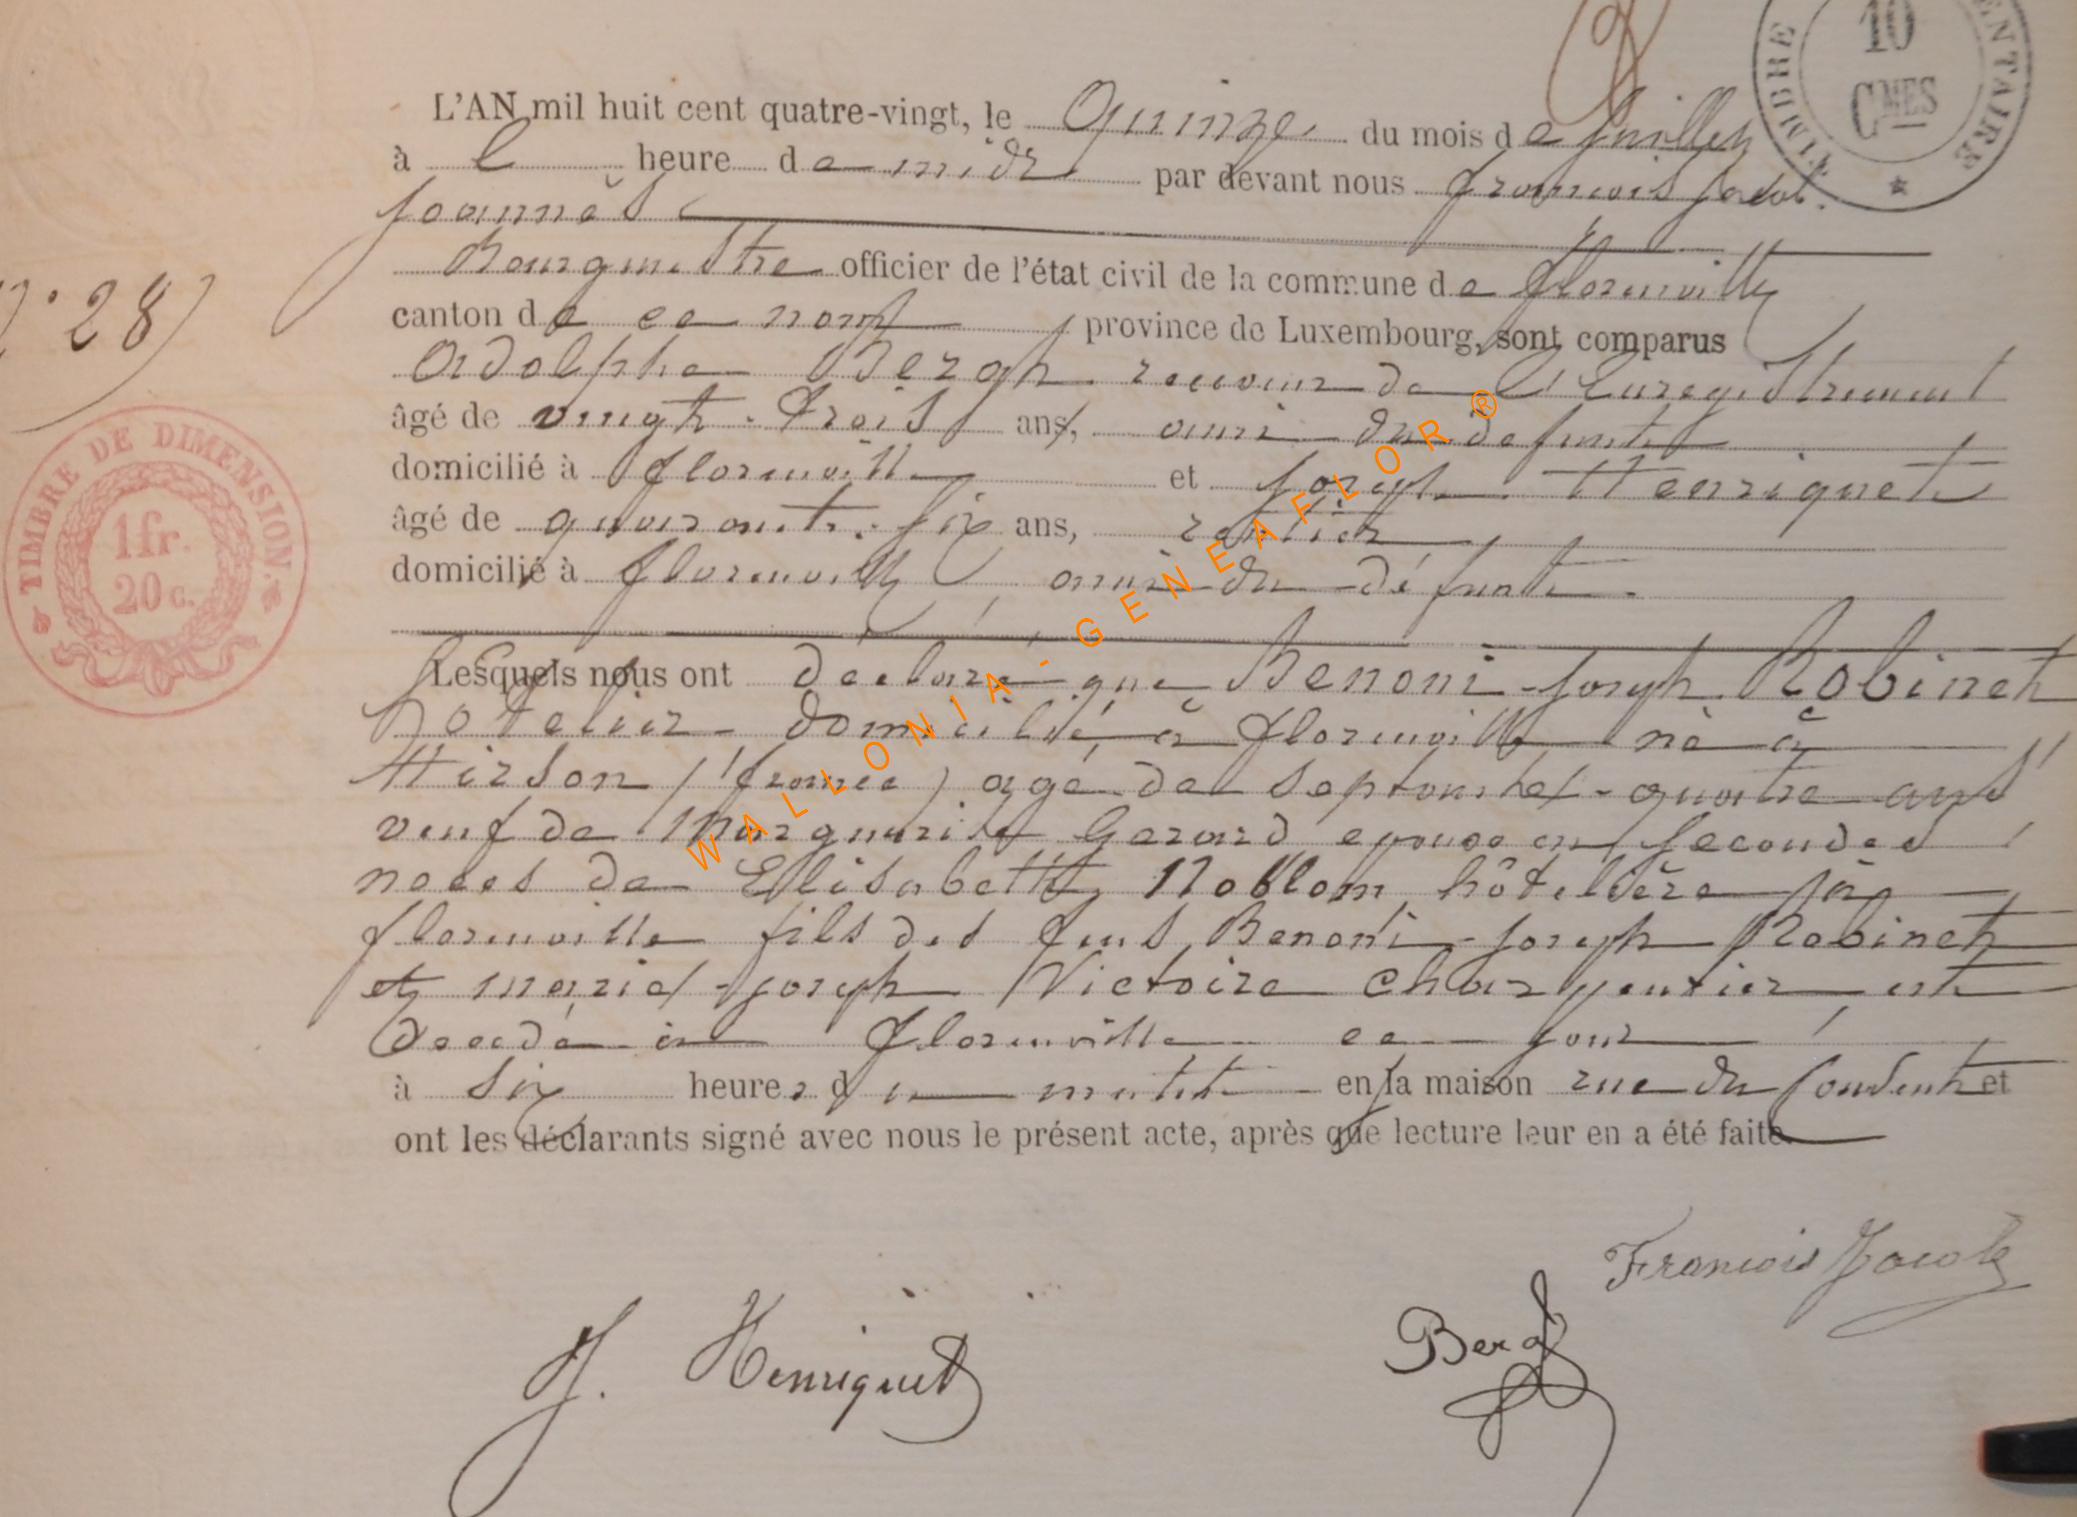 L'AN mil huit cent quatre-vingt, le Quinze du mois de Juillet
à l' heure de midi par devant nous François Jacob
Joannès
Bourgmestre officier de l'état civil de la commune de Florenville
canton de ce nom province de Luxembourg, sont comparus
Adolphe Bergh receveur de l'Enregistrement
âgé de vingt-trois ans, ami du défunt
domicilié à Florenville et Joseph Henriquet
âgé de quarante-six ans, rentier
domicilié à Florenville, ami du défunt.
Lesquels nous ont déclaré que Benoni-Joseph Robinet
hotelier domicilié à Florenville né à
Hirson (france) agé de septante-quatre ans
veuf de Marguerite Gerard epoux en secondes
noces de Elisabeth Noblom hôtelière à
florenville fils des feus Benoni-Joseph Robinet
et marie-joseph Victoire Charpentier est
decedé à Florenville ce jour
à six heures du matin en la maison rue du Couvent et
ont les déclarants signé avec nous le présent acte, après que lecture leur en a été faite.
François Jacob
J. Henriquet
Bergh
N° 28
TIMBRE DE DIMENSION.
1 fr.
20 c.
TIMBRE
10
CMES
WALLONIA - GENEAFLOR ®